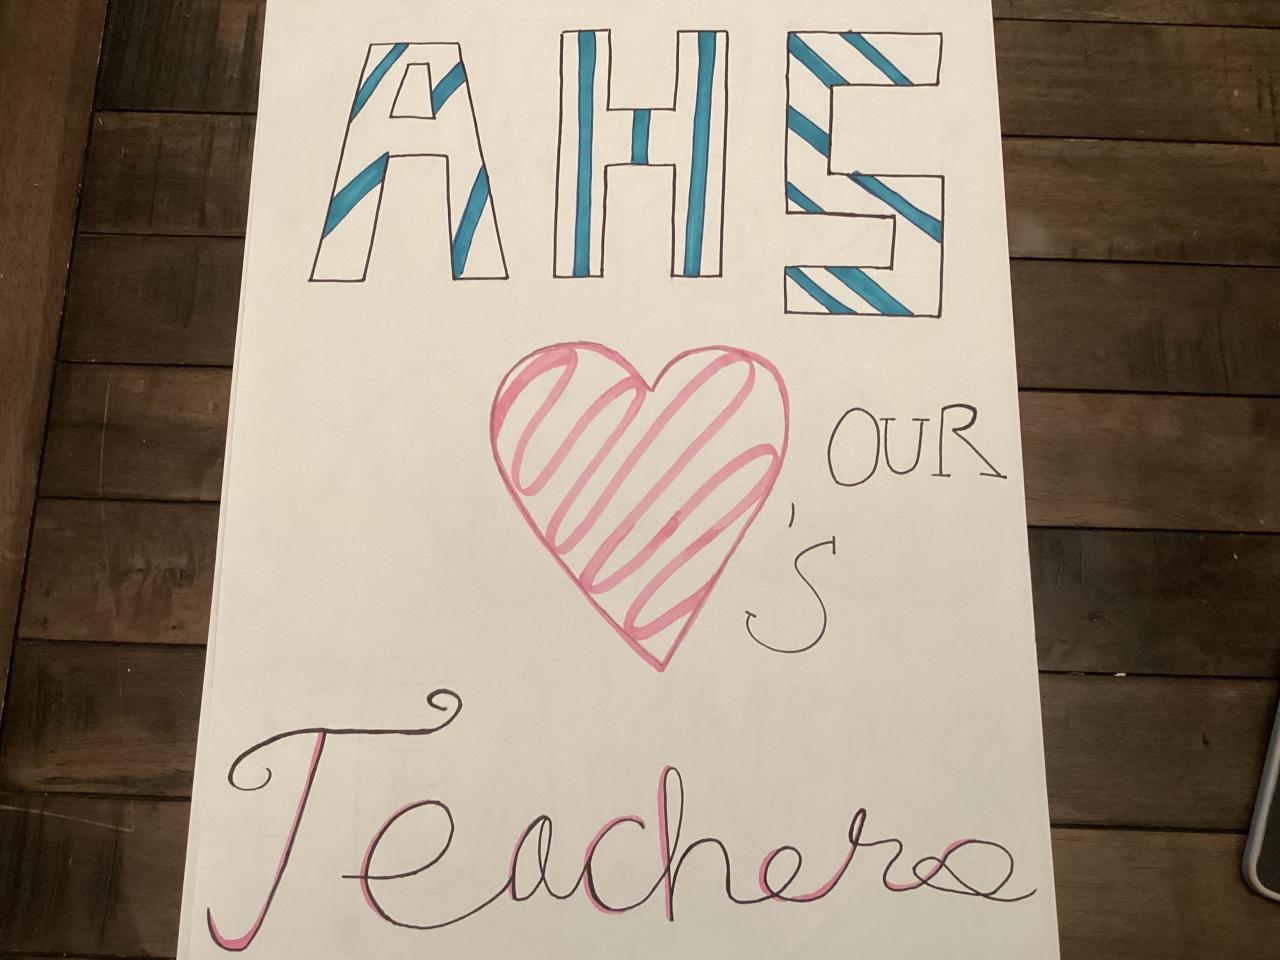 AHS
OUR
's
Teachers